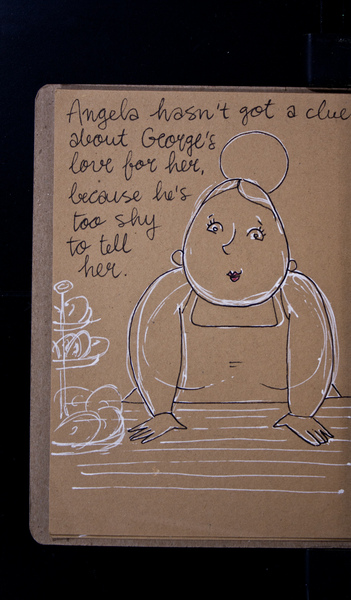 Angela hasn't got a clue
about George's
love for her,
because he's
too shy
to tell
her.